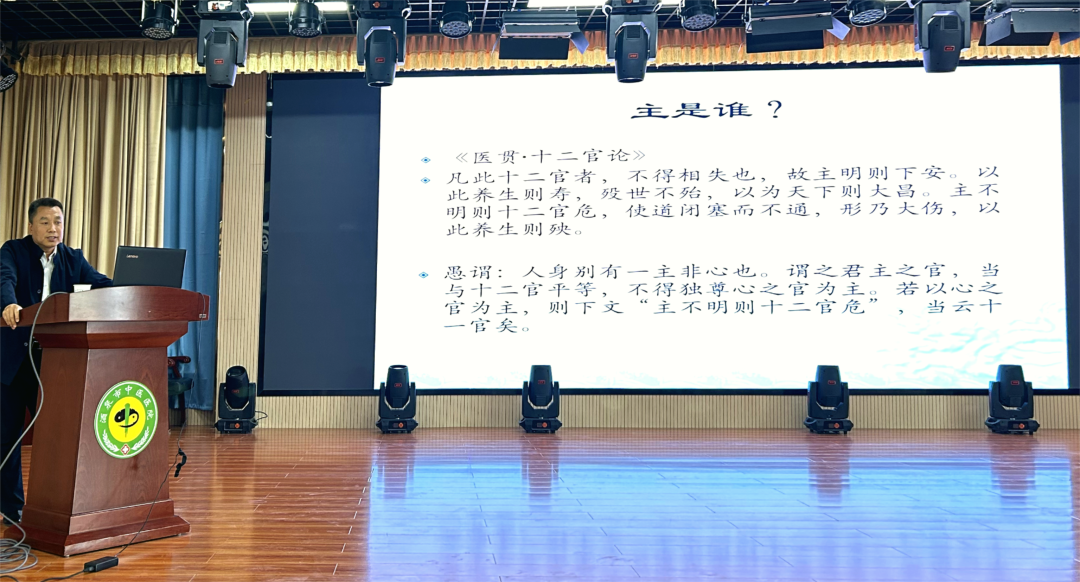 主是谁？
《医贯·十二官论》
凡此十二官者，不得相失也，故主明则下安。以
此养生则寿，殁世不殆，以为天下则大昌。主不
明则十二官危，使道闭塞而不通，形乃大伤，以
此养生则殃。
愚谓：人身别有一主非心也。谓之君主之官，当
与十二官平等，不得独尊心之官为主。若以心之
官为主，则下文“主不明则十二官危”，当云十
一官矣。
酒泉市中医医院